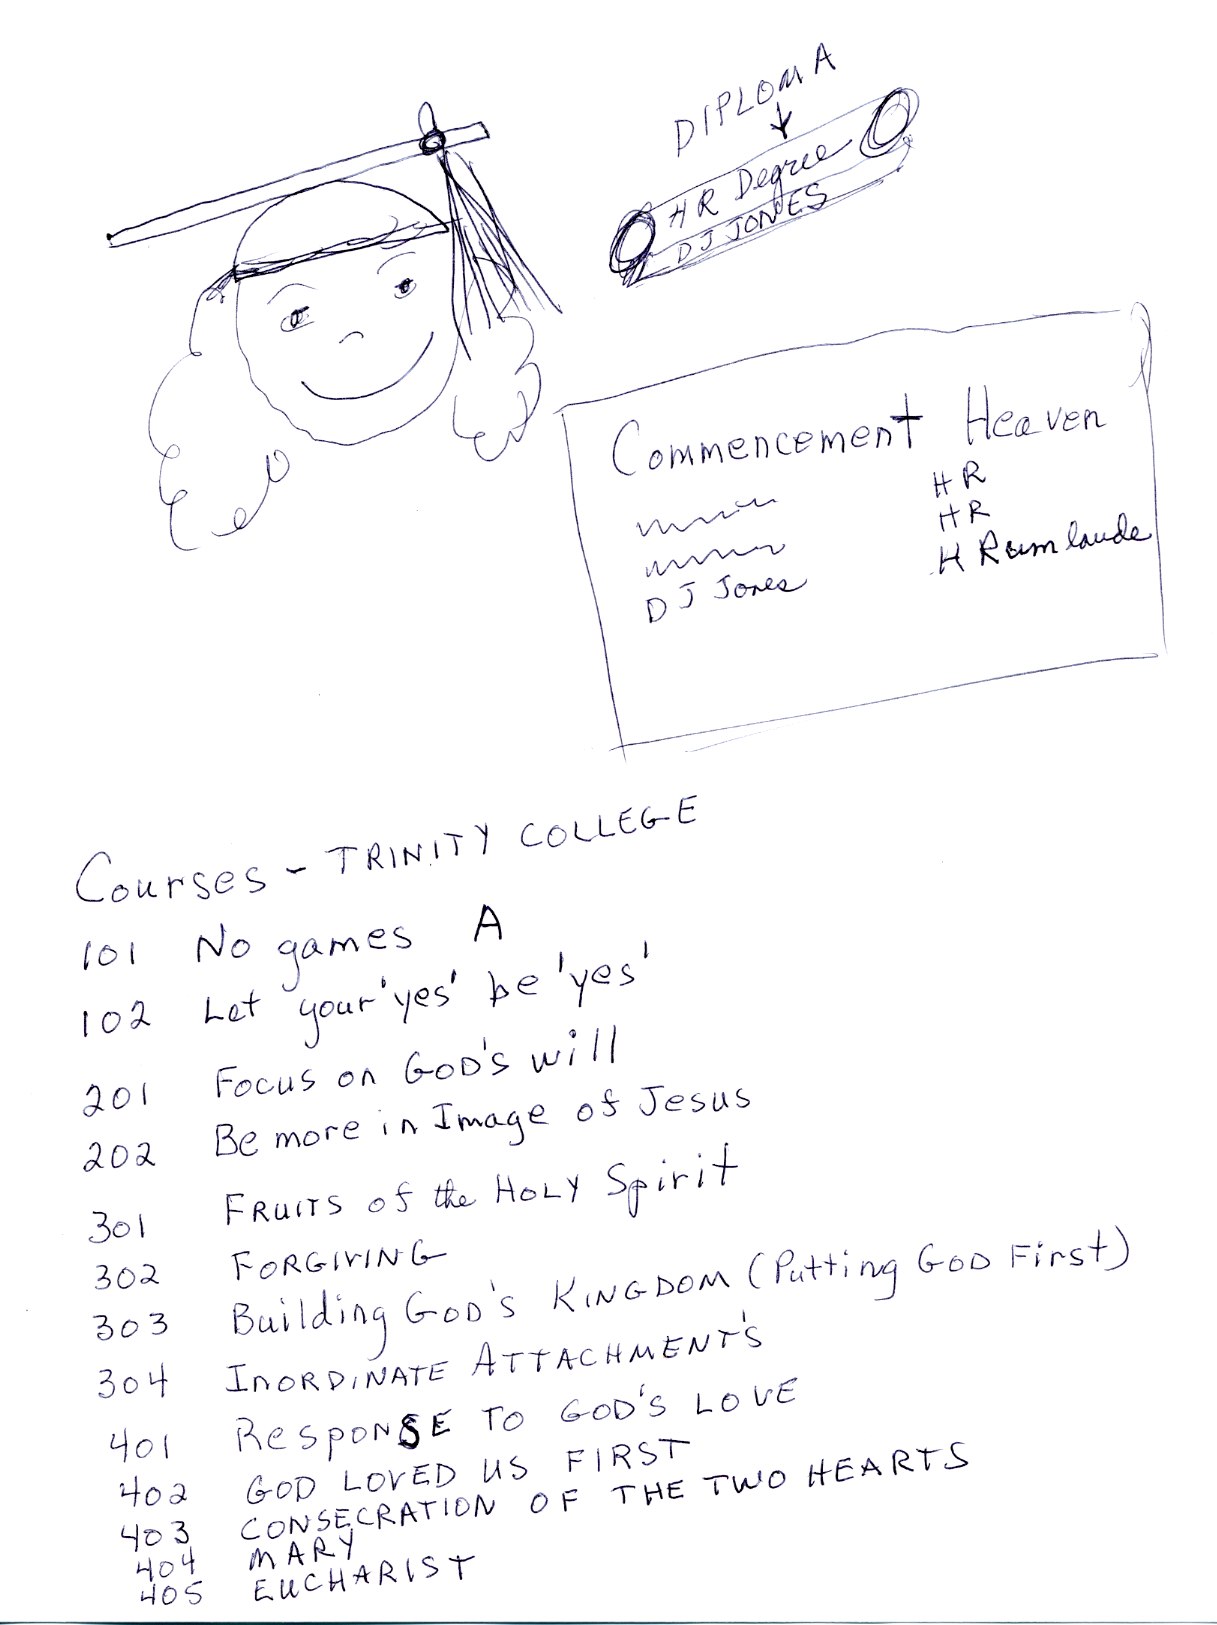 DIPLOMA
HR Degree
DJ JONES
Commencement Heaven
HR
HR
DJ Jones H Rum laude
Courses - TRINITY COLLEGE
101 No games A
102 Let your 'yes' be 'yes'
201 Focus on GOD'S will
202 Be more in Image of Jesus
301 FRUITS of the HOLY Spirit
302 FORGIVING
303 Building GOD'S KINGDOM (Putting GOD First)
304 INORDINATE ATTACHMENT'S
401 ResponSE TO GOD'S LOVE
402 GOD LOVED US FIRST
403 CONSECRATION OF THE TWO HEARTS
404 MARY
405 EUCHARIST